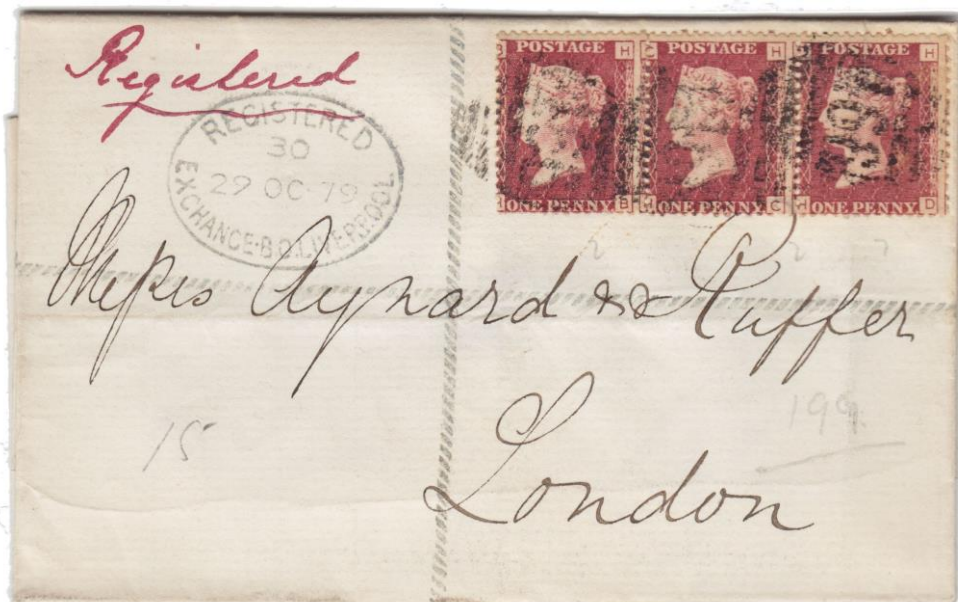 Registered
REGISTERED
30
29 OC 79
EXCHANGE·B.O. LIVERPOOL
B H
POSTAGE
ONE PENNY
H B
C H
POSTAGE
ONE PENNY
H C
D H
POSTAGE
ONE PENNY
H D
Messrs Aynard & Ruffer
London
15
199